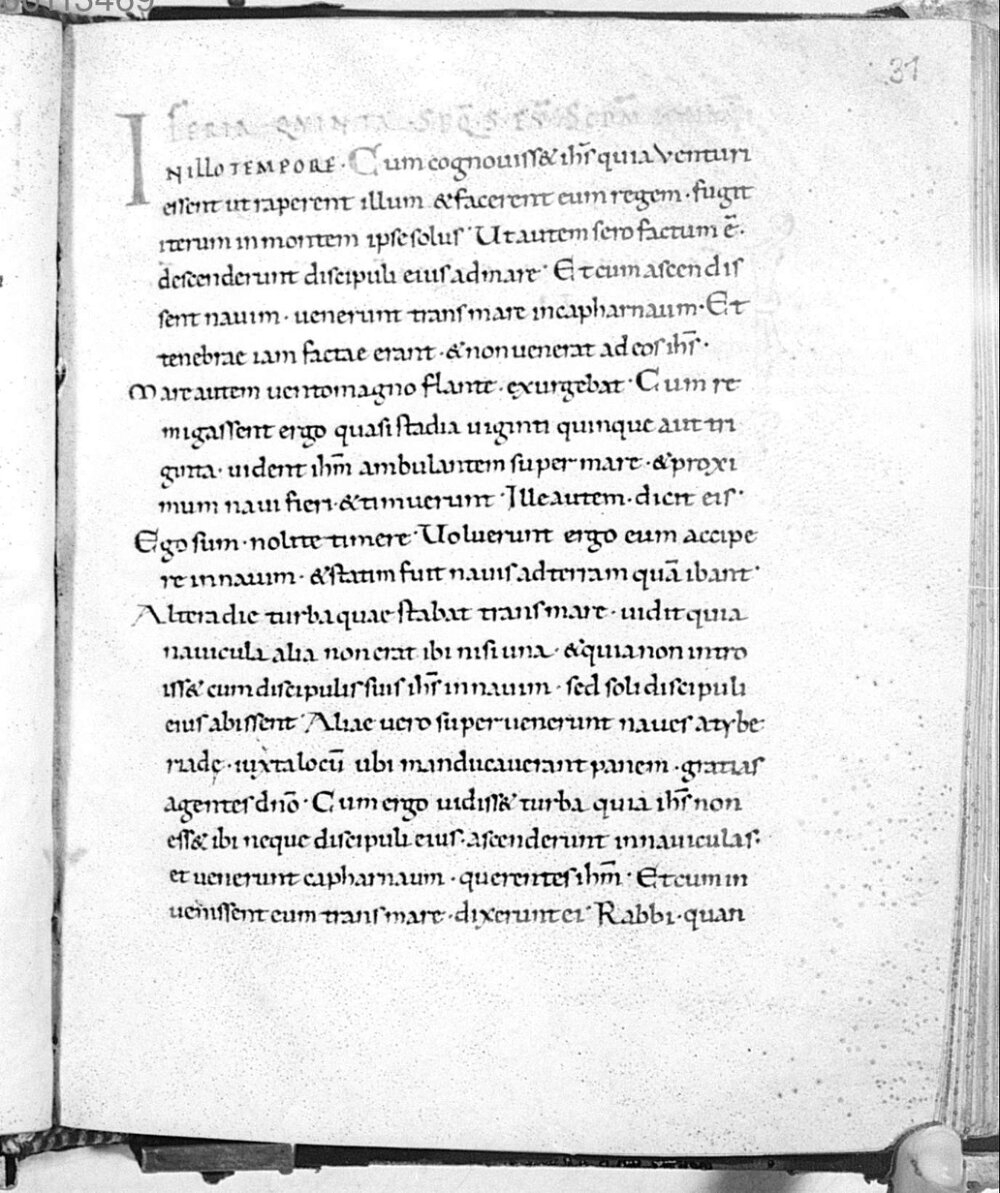 31
FERIA QUINTA SEQ̅ S EV̅ SCDM̅
IN ILLO TEMPORE · Cum cognouiss& ih̅s quia venturi
essent ut raperent illum &facerent eum regem · fugit
iterum in montem ipse solus · Ut autem sero factum e̅ ·
descenderunt discipuli eius ad mare · Et cum ascendis
sent nauim · uenerunt trans mare in capharnaum · Et
tenebrae iam factae erant · & non uenerat ad eos ih̅s ·
Mare autem uento magno flante · exurgebat · Cum re
migassent ergo quasi stadia uiginti quinque aut tri
ginta · uident ih̅m ambulantem super mare · & proxi
mum naui fieri · & timuerunt · Ille autem · dicit eis ·
Ego sum · nolite timere · Uoluerunt ergo eum accipe
re in nauim · & statim fuit nauis ad terram qua̅ ibant ·
Altera die turba quae stabat trans mare · uidit quia
nauicula alia non erat ibi nisi una · & quia non intro
iss& cum discipulis suis ih̅s in nauim · sed soli discipuli
eius abissent · Aliae uero superuenerunt naues a tybe
riadę · iuxta locu̅ ubi manducauerant panem · gratias
agentes dn̅o · Cum ergo uidiss& turba quia ih̅s non
ess& ibi neque discipuli eius · ascenderunt in nauiculas ·
et uenerunt capharnaum · querentes ih̅m · Et cum in
uenissent eum trans mare · dixerunt ei · Rabbi · quan